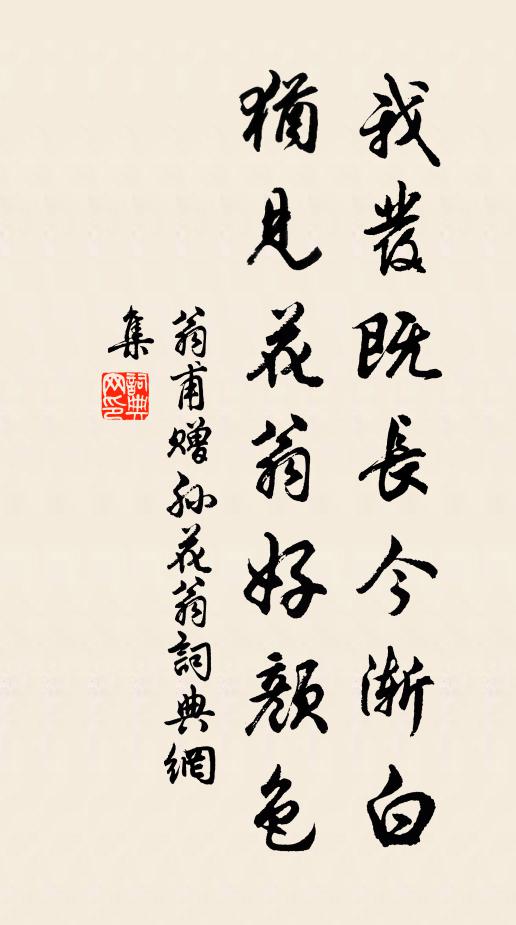 我發既長今漸白
猶見花翁好顏色
翁甫贈孫花翁詞典網
集
詞典網印